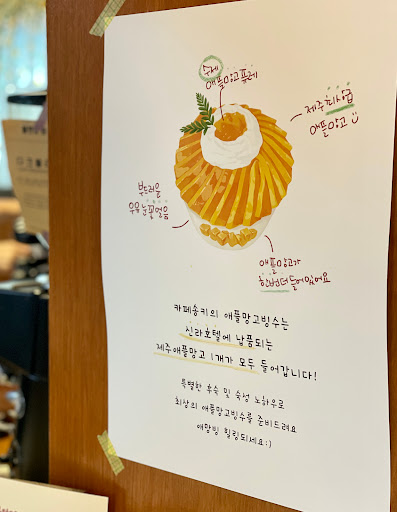 수제
애플망고퓨레
제주직사입
애플망고
부드러운
우유눈꽃얼음
애플망고가
한번더 들어있어요
카페송키의 애플망고빙수는
신라호텔에 납품되는
제주애플망고 1개가 모두 들어갑니다!
특별한 후숙 및 숙성 노하우로
최상의 애플망고빙수를 준비드려요
애망빙 힐링되세요:)